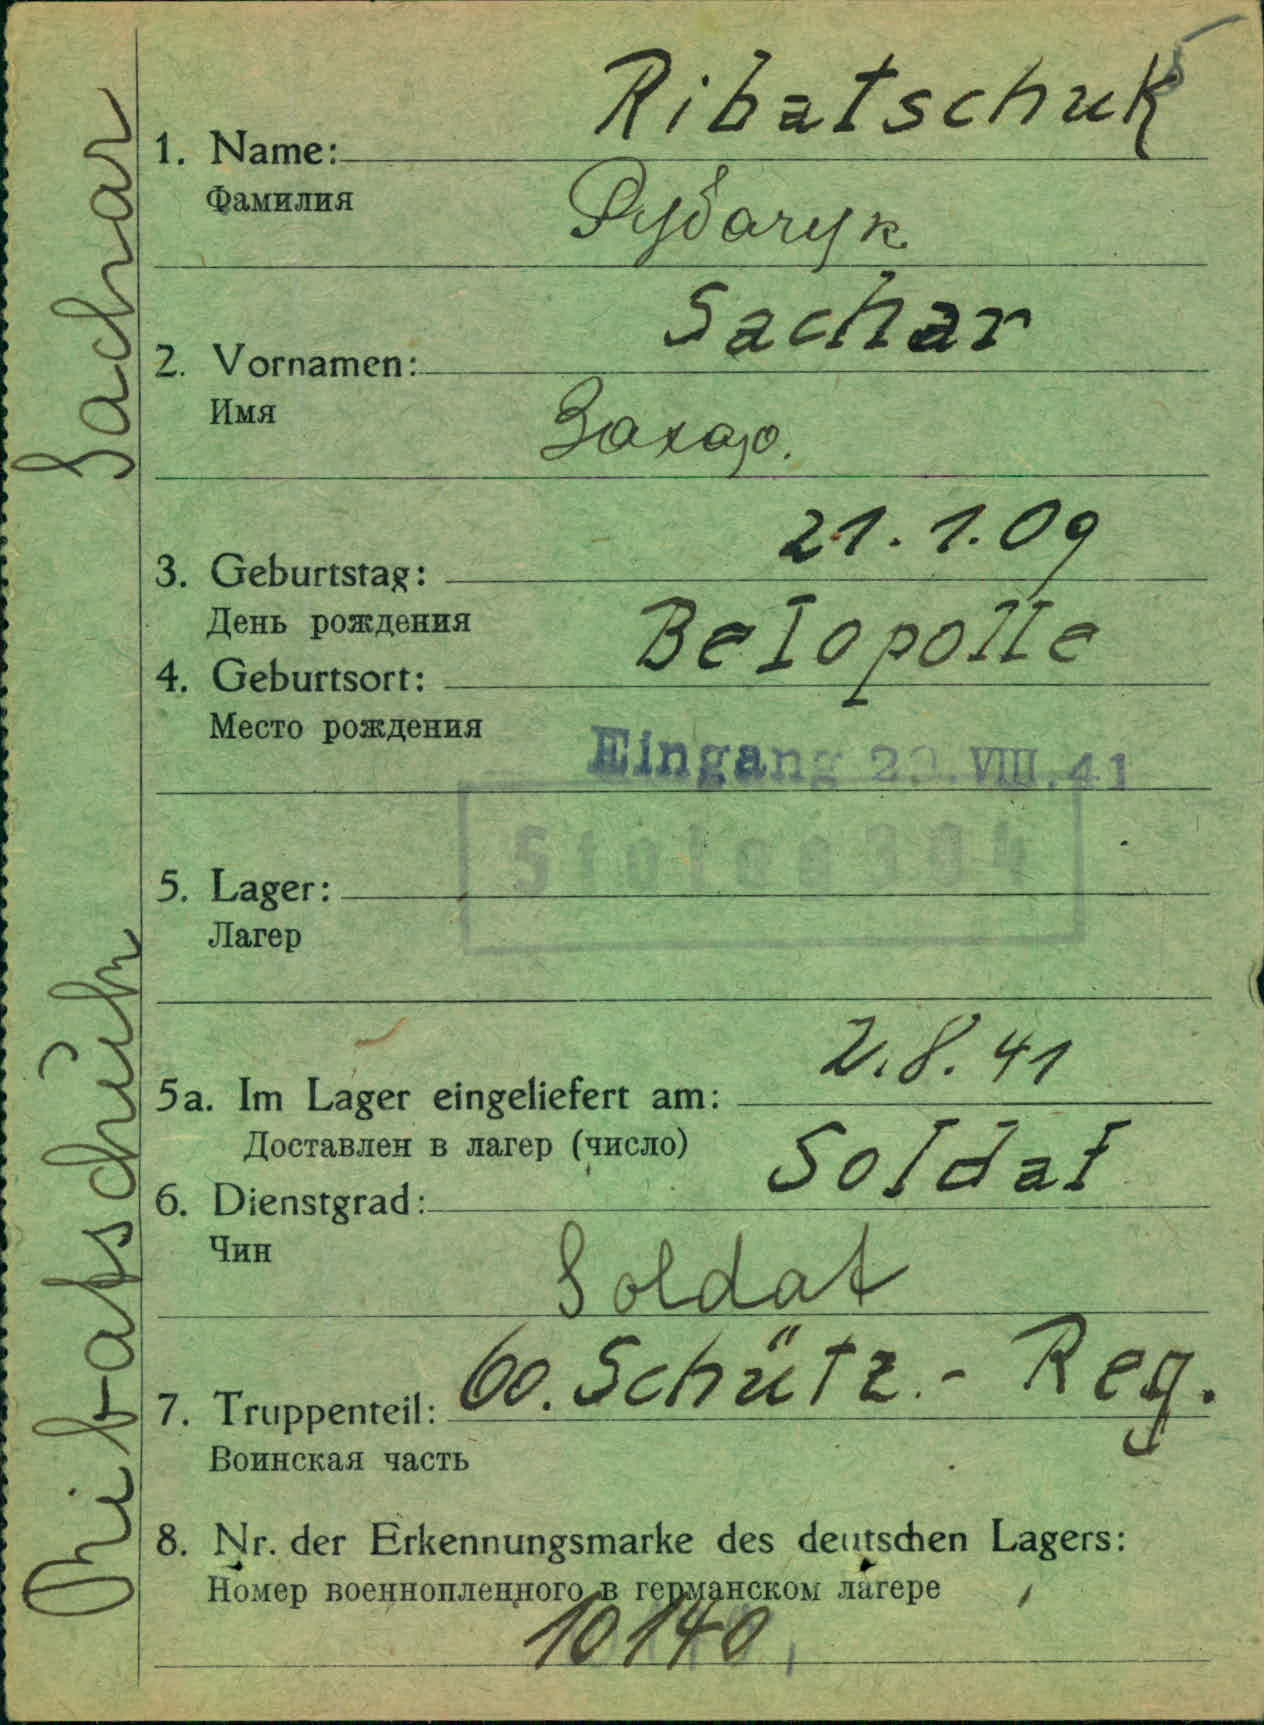 Ribatschuk
1. Name:
Фамилия
Рубачук
Sachar
2. Vornamen:
Имя
Захар.
21.1.09
3. Geburtstag:
День рождения
Belopolle
4. Geburtsort:
Место рождения
Eingang VIII.41
304
5. Lager:
Лагер
2.8.41
5a. Im Lager eingeliefert am:
Доставлен в лагер (число)
Soldat
6. Dienstgrad:
Чин
Soldat
60. Schütz.- Reg.
7. Truppenteil:
Воинская часть
8. Nr. der Erkennungsmarke des deutschen Lagers:
Номер военнопленного в германском лагере
10140
Ribatschuk Sachar